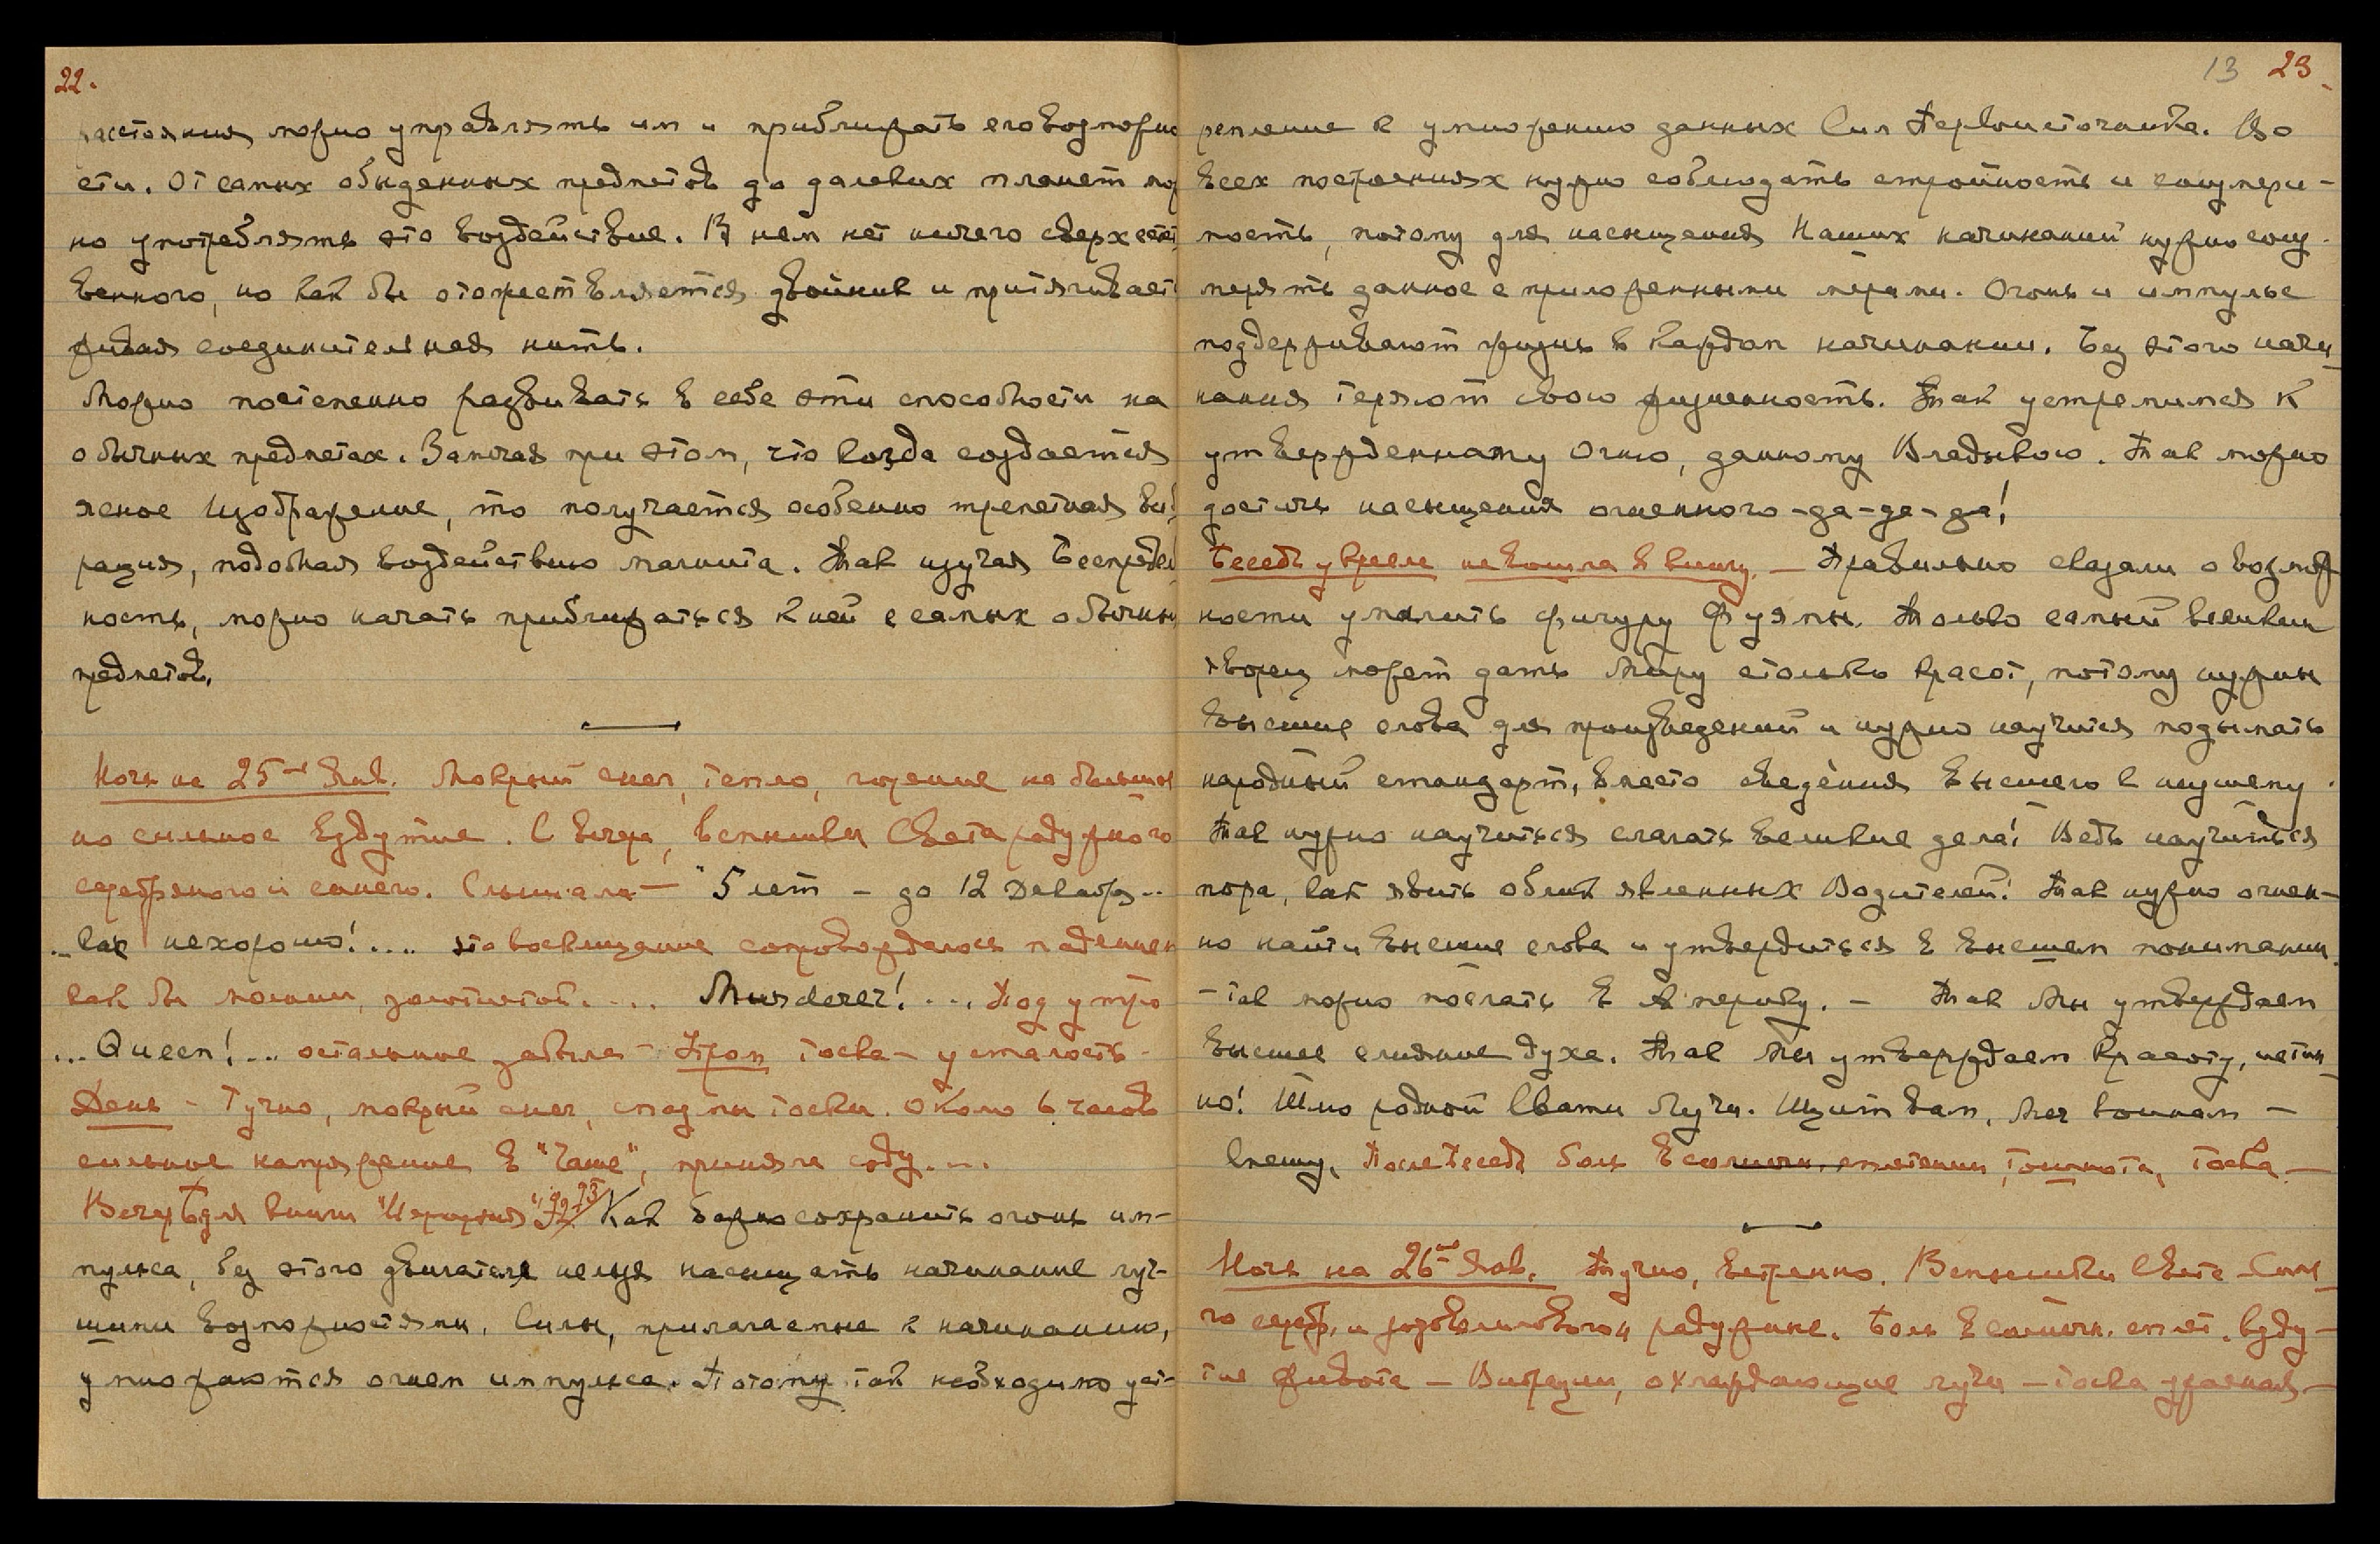 22.
расстояния можно управлять им и приближать его возможно
сти. От самых обыденных предметов до далеких планет мож
но употреблять это воздействие. В нем нет ничего сверхестест
венного, но как бы отожествляется двойник и притягивает
живая соединительная нить.
Можно постепенно развивать в себе эти способности на
обычных предметах. Замечая при этом, что когда создается
ясное Изображение, то получается особенно трепетная виб
рация, подобная воздействию магнита. Так изучая Беспредель
ность, можно начать приближаться к ней с самых обычных
предметов.
Ночь на 25-ое Янв. Мокрый снег, тепло, горение не большое
но сильное вздутие. С вечера, вспышки Света радужного
серебряного и синего. Слышала — "5 лет — до 12 Декабря..
.. как нехорошо!.... это восклицание сопровождалось падением
как бы молнии, золотистой. ... Murderer! ... Под утро
... Queen! ... остальное забыла — Утром тоска — усталость —
День — Тучно, мокрый снег, спазмы тоски. Около 6 часов
сильное напряжение в "Чаше", приняла соду....
Вечер Б для книги "Иерархия" Как важно сохранить огонь им-
пульса, без этого двигателя нельзя насыщать начинание луч-
шими возможностями. Силы, прилагаемые к начинанию,
умножаются огнем импульса. Потому так необходимо уст-
13 23.
ремление к умножению данных Сил Первоисточника. Во
всех построениях нужно соблюдать стройность и соизмери-
мость, потому для насыщения Наших начинаний нужно соиз-
мерять данное с приложенными мерами. Огонь и импульс
поддерживают жизнь в каждом начинании. Без этого начи-
нания теряют свою жизненность. Так устремимся к
утвержденному Огню, данному Владыкою. Так можно
достичь насыщения огненного — да — да — да!
Беседы у кресла не вошла в книгу. — Правильно сказали о возмож
ности умалить фигуру Фуямы. Только самый великий
творец может дать Миру столько красот, потому нужны
высшие слова для произведений и нужно научится подымать
народный стандарт, вместо сведения высшего к низшему.
Так нужно научиться слагать великие дела! Ведь научиться
пора, как явить облик явленных Водителей! Так нужно огнен-
но найти высшие слова и утвердиться в высшем понимании.
— так можно послать в Америку. — Так Мы утверждаем
высшее слияние духа. Так Мы утверждаем красоту, истин-
но! Шлю родной Свати Лучи. Щит вам, Меч воинам —
внешу. После Беседы боль в солнечн. сплетении, тошнота, тоска —
Ночь на 26-ое Янв. Тучно, ветренно. Вспышки Света — Сине
го сереб. и розоволилового и радужные. Боль в солнечн. сплет. взду-
тие живота — Вибрации, охлаждающие лучи — тоска ужасная —